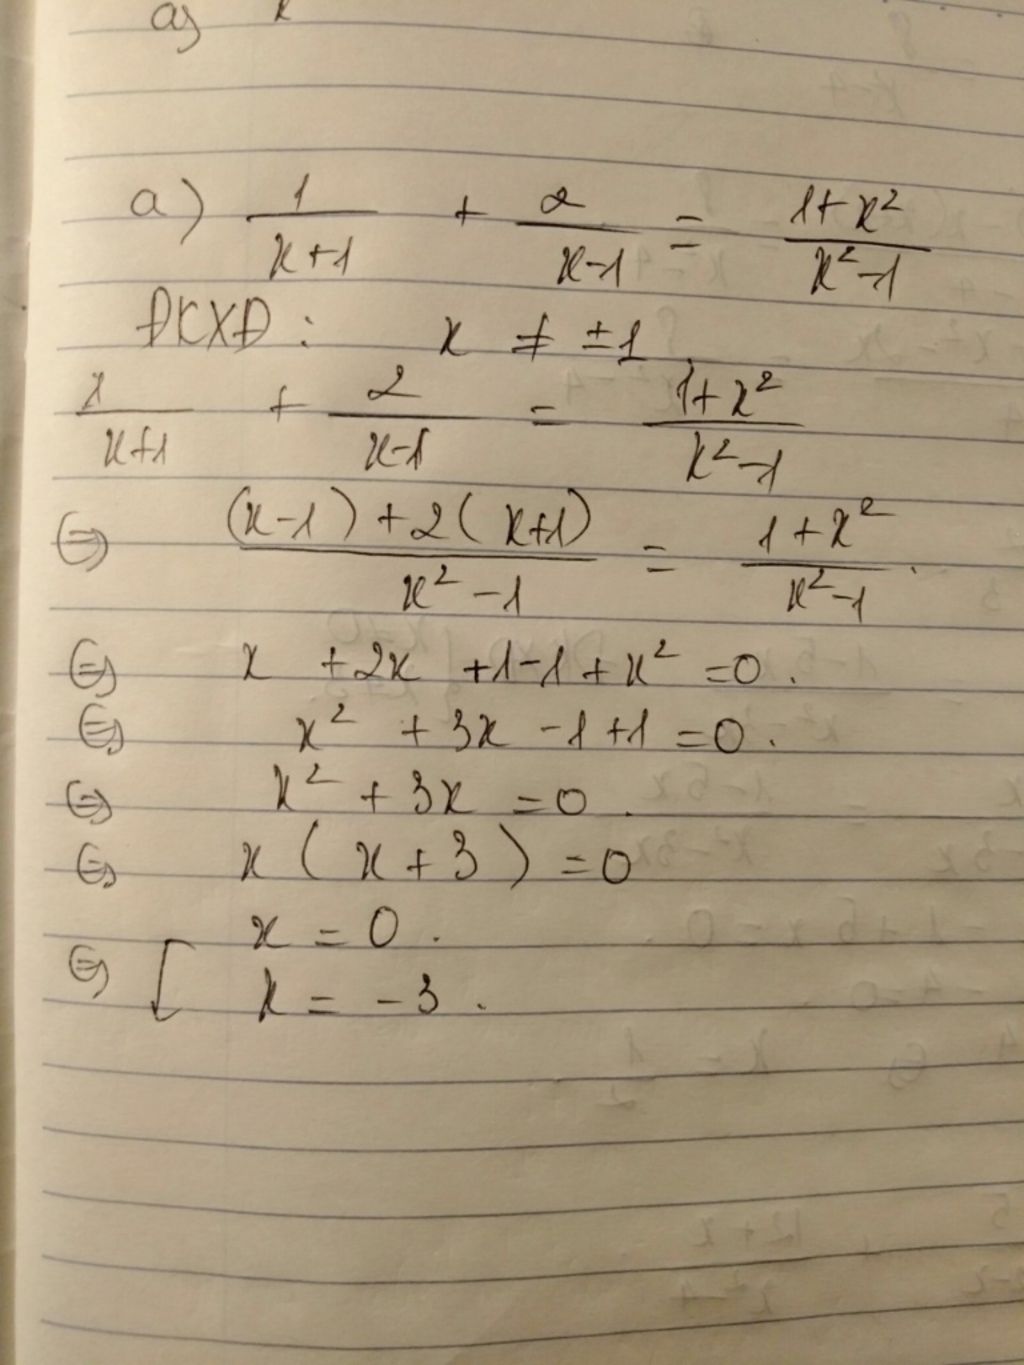 a)
a) 1/(x+1) + 2/(x-1) = (1+x²)/(x²-1)
ĐKXĐ : x ≠ ±1
1/(x+1) + 2/(x-1) = (1+x²)/(x²-1)
⇔ ((x-1)+2(x+1))/(x²-1) = (1+x²)/(x²-1) .
⇔ x +2x +1-1+x² =0 .
⇔ x² +3x -1+1 =0 .
⇔ x² +3x =0 .
⇔ x (x+3) =0
⇔ [ x = 0 .
x = -3 .